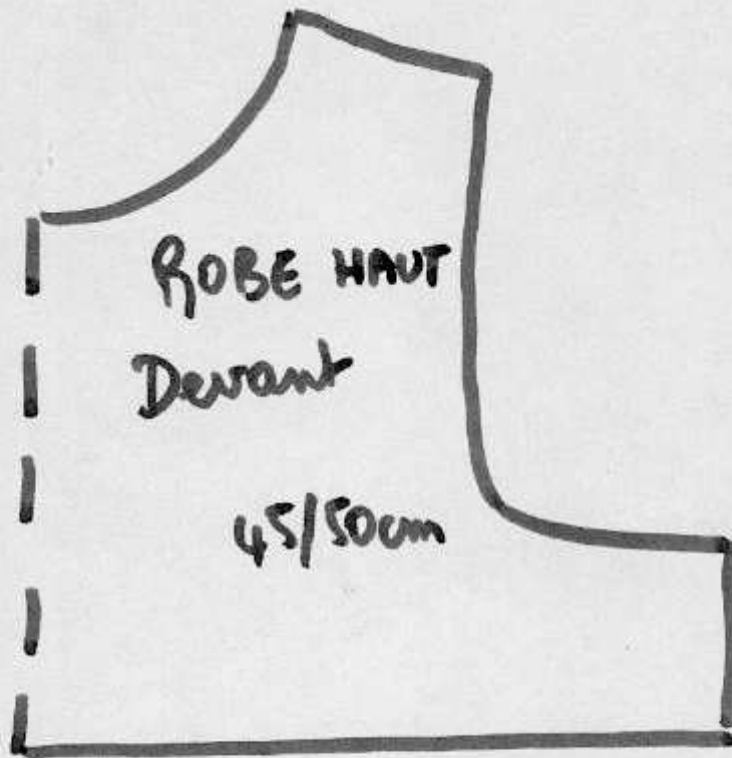 ROBE HAUT
Devant
45/50cm